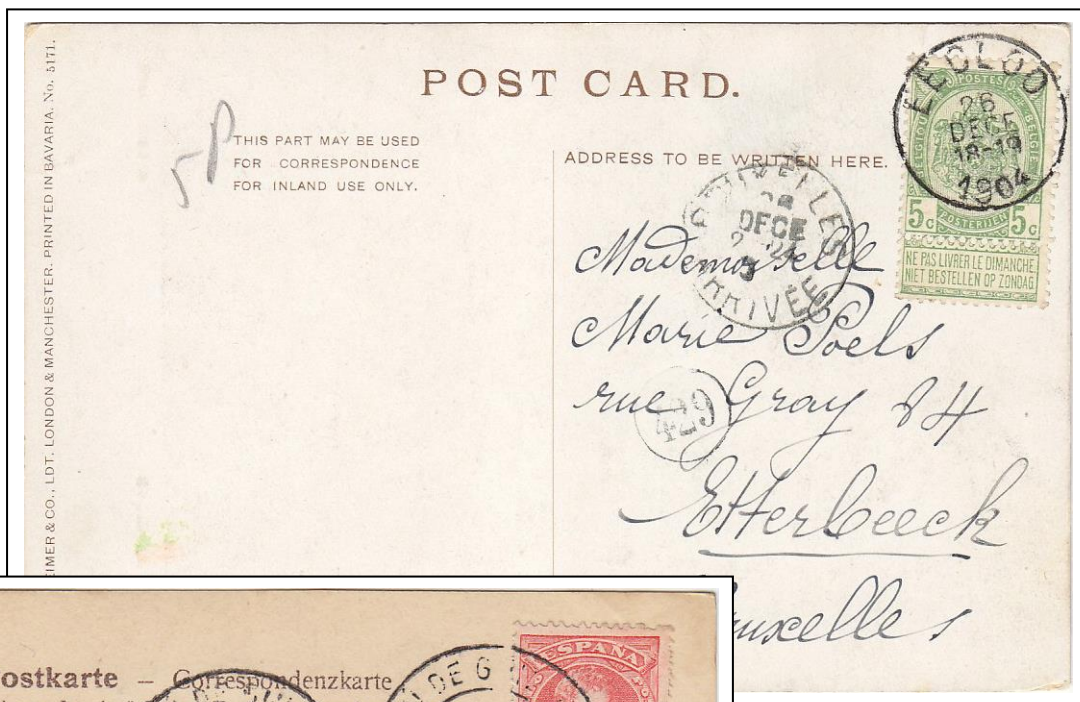 IMER & CO., LDT. LONDON & MANCHESTER. PRINTED IN BAVARIA. No. 5171.
POST CARD.
5P
THIS PART MAY BE USED
FOR CORRESPONDENCE
FOR INLAND USE ONLY.
ADDRESS TO BE WRITTEN HERE.
EECLOO
26
DECE
18-19
1904
POSTES
BELGIQUE
BELGIE
5c POSTERIJEN 5c
NE PAS LIVRER LE DIMANCHE
NIET BESTELLEN OP ZONDAG
BRUXELLES
DECE
ARRIVÉE
Mademoiselle
Marie Poels
rue Gray 84
429
Etterbeeck
Bruxelles
ostkarte – Correspondenzkarte
ESPAÑA